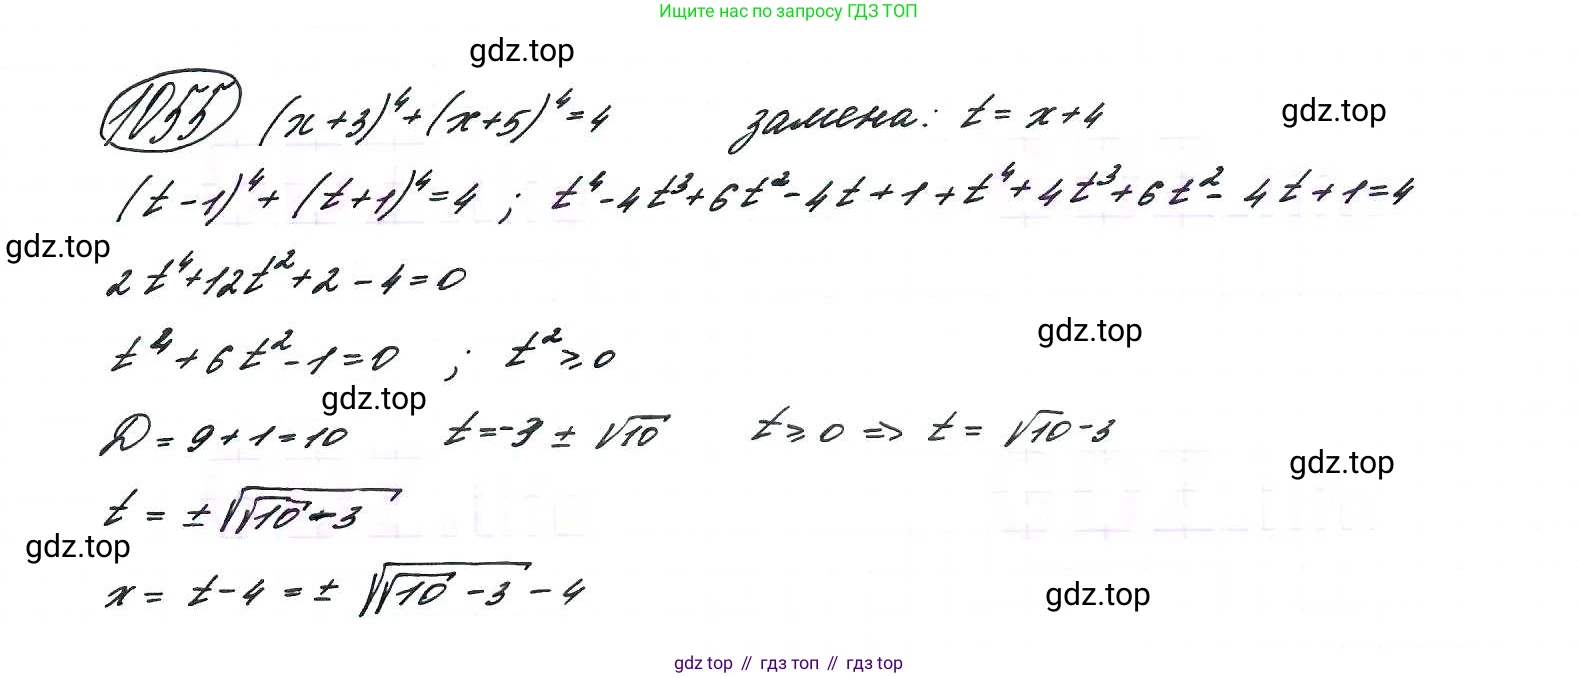 Ищите нас по запросу ГДЗ ТОП
gdz.top
1055 (x+3)⁴+(x+5)⁴=4 замена: t = x+4
gdz.top
(t-1)⁴+(t+1)⁴=4 ; t⁴-4t³+6t²-4t+1+t⁴+4t³+6t²-4t+1=4
gdz.top
2t⁴+12t²+2-4=0
gdz.top
t⁴+6t²-1=0 ; t²⩾0
gdz.top
D=9+1=10 t=-3±√10 t⩾0 => t=√10-3
gdz.top
t = ±√(√10-3)
gdz.top
x = t-4 = ±√(√10-3) - 4
gdz.top
gdz top // гдз топ // гдз top